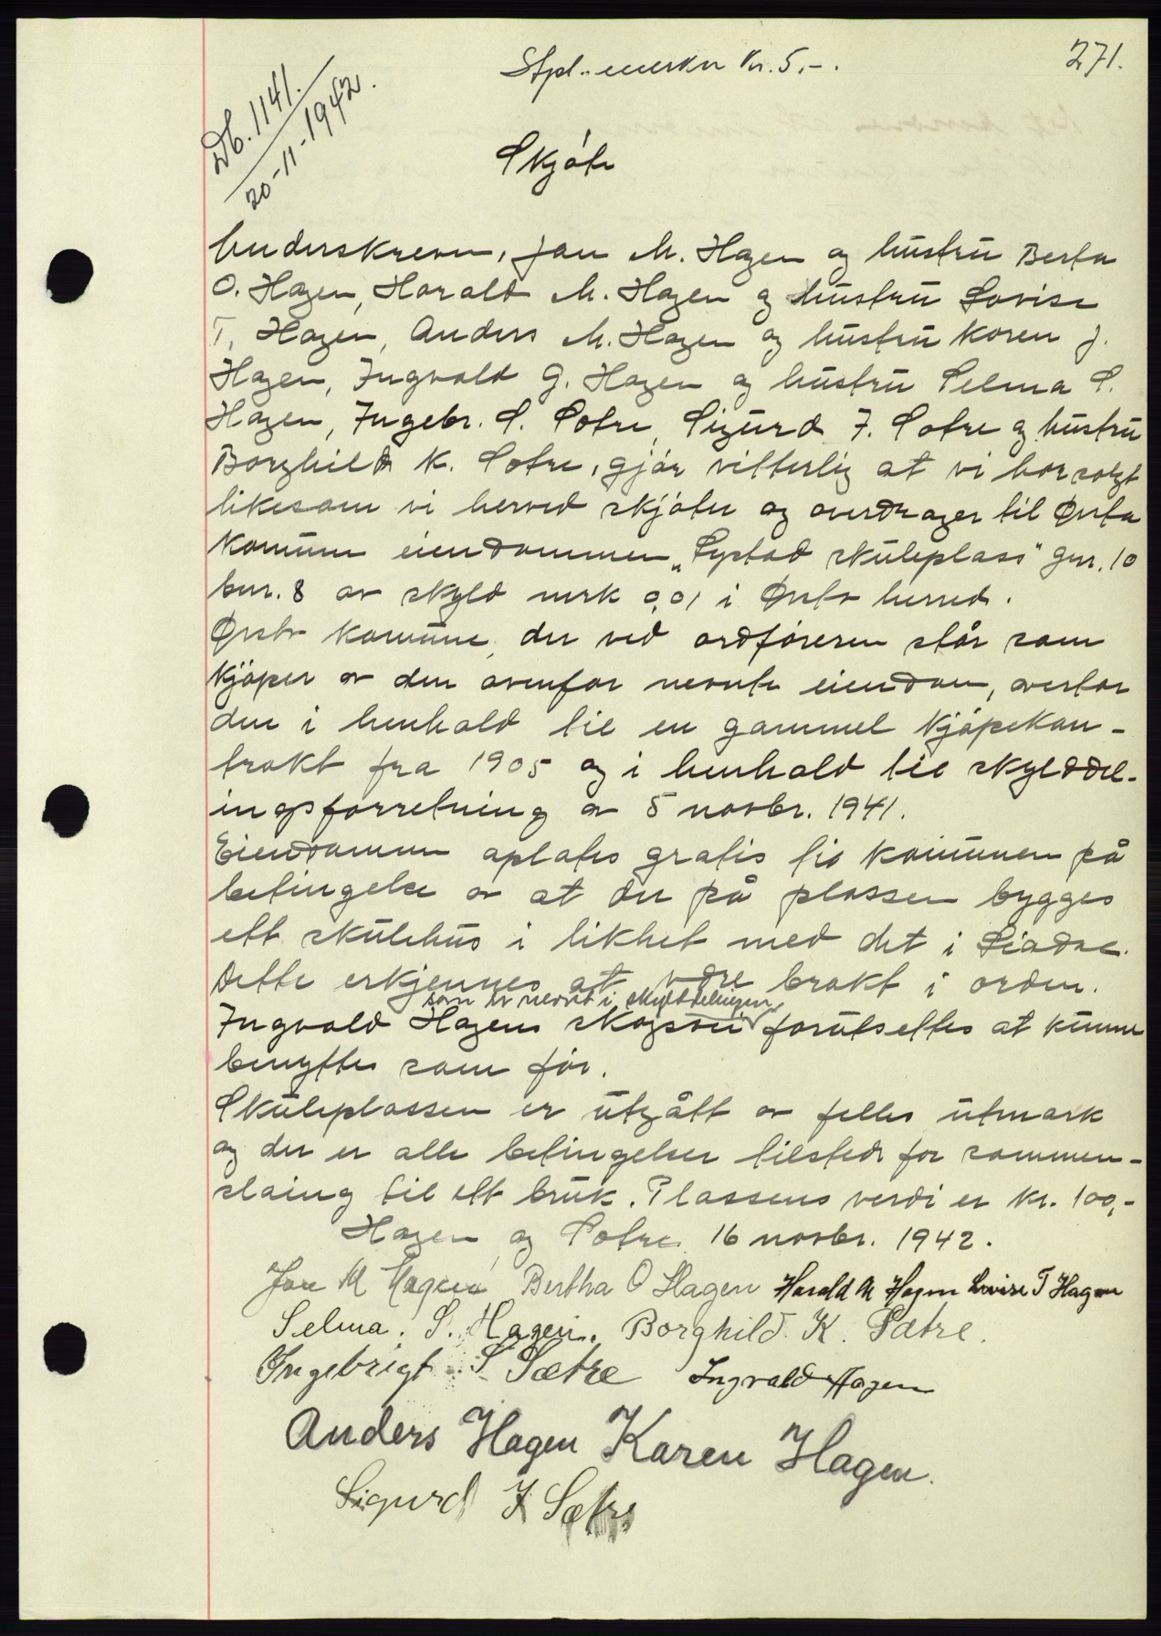 271.
Stpl.-merker kr. 5,-.
Db. 1141.
20-11-1942.
Skjøte
Underskrevne, Jon M. Hagen og hustru Berta
O. Hagen, Harald M. Hagen og hustru Lovise
T. Hagen, Anders M. Hagen og hustru Karen J.
Hagen, Ingvald G. Hagen og hustru Selma S.
Hagen, Ingebr. S. Sætre, Sigurd I. Sætre og hustru
Borghild K. Sætre, gjør vitterlig at vi har solgt
likesom vi herved skjøter og overdrager til Ørsta
komune eiendommen „Systad skuleplass" gnr. 10
bnr. 8 av skyld mrk 0,01 i Ørsta herred.
Ørsta komune, der ved ordføreren står som
kjøper av den ovenfor nevnte eiendom, overtar
den i henhold til en gammel kjøpekon-
trakt fra 1905 og i henhold til skylddel-
ingsforretning av 5 novbr. 1941.
Eiendommen avlates gratis til komunen på
betingelse av at der på plassen bygges
ett skulehus i likhet med det i
Dette erkjennes at være brakt i orden.
som er nevnt i skylddelingen
Ingvald Hagens skogsvei forutsettes at kunne
benyttes som før.
Skuleplassen er utgått av felles utmark
og der er alle betingelser tilstede for sammen-
slåing til ett bruk. Plassens verdi er kr. 100,-
Hagen og Sætre 16 novbr. 1942.
Jon M Hagen Bertha O Hagen Harald M Hagen Lovise T Hagen
Selma. S. Hagen. Borghild K. Sætre.
Ingebrigt S Sætre Ingvald Hagen
Anders Hagen Karen Hagen.
Sigurd I Sætre